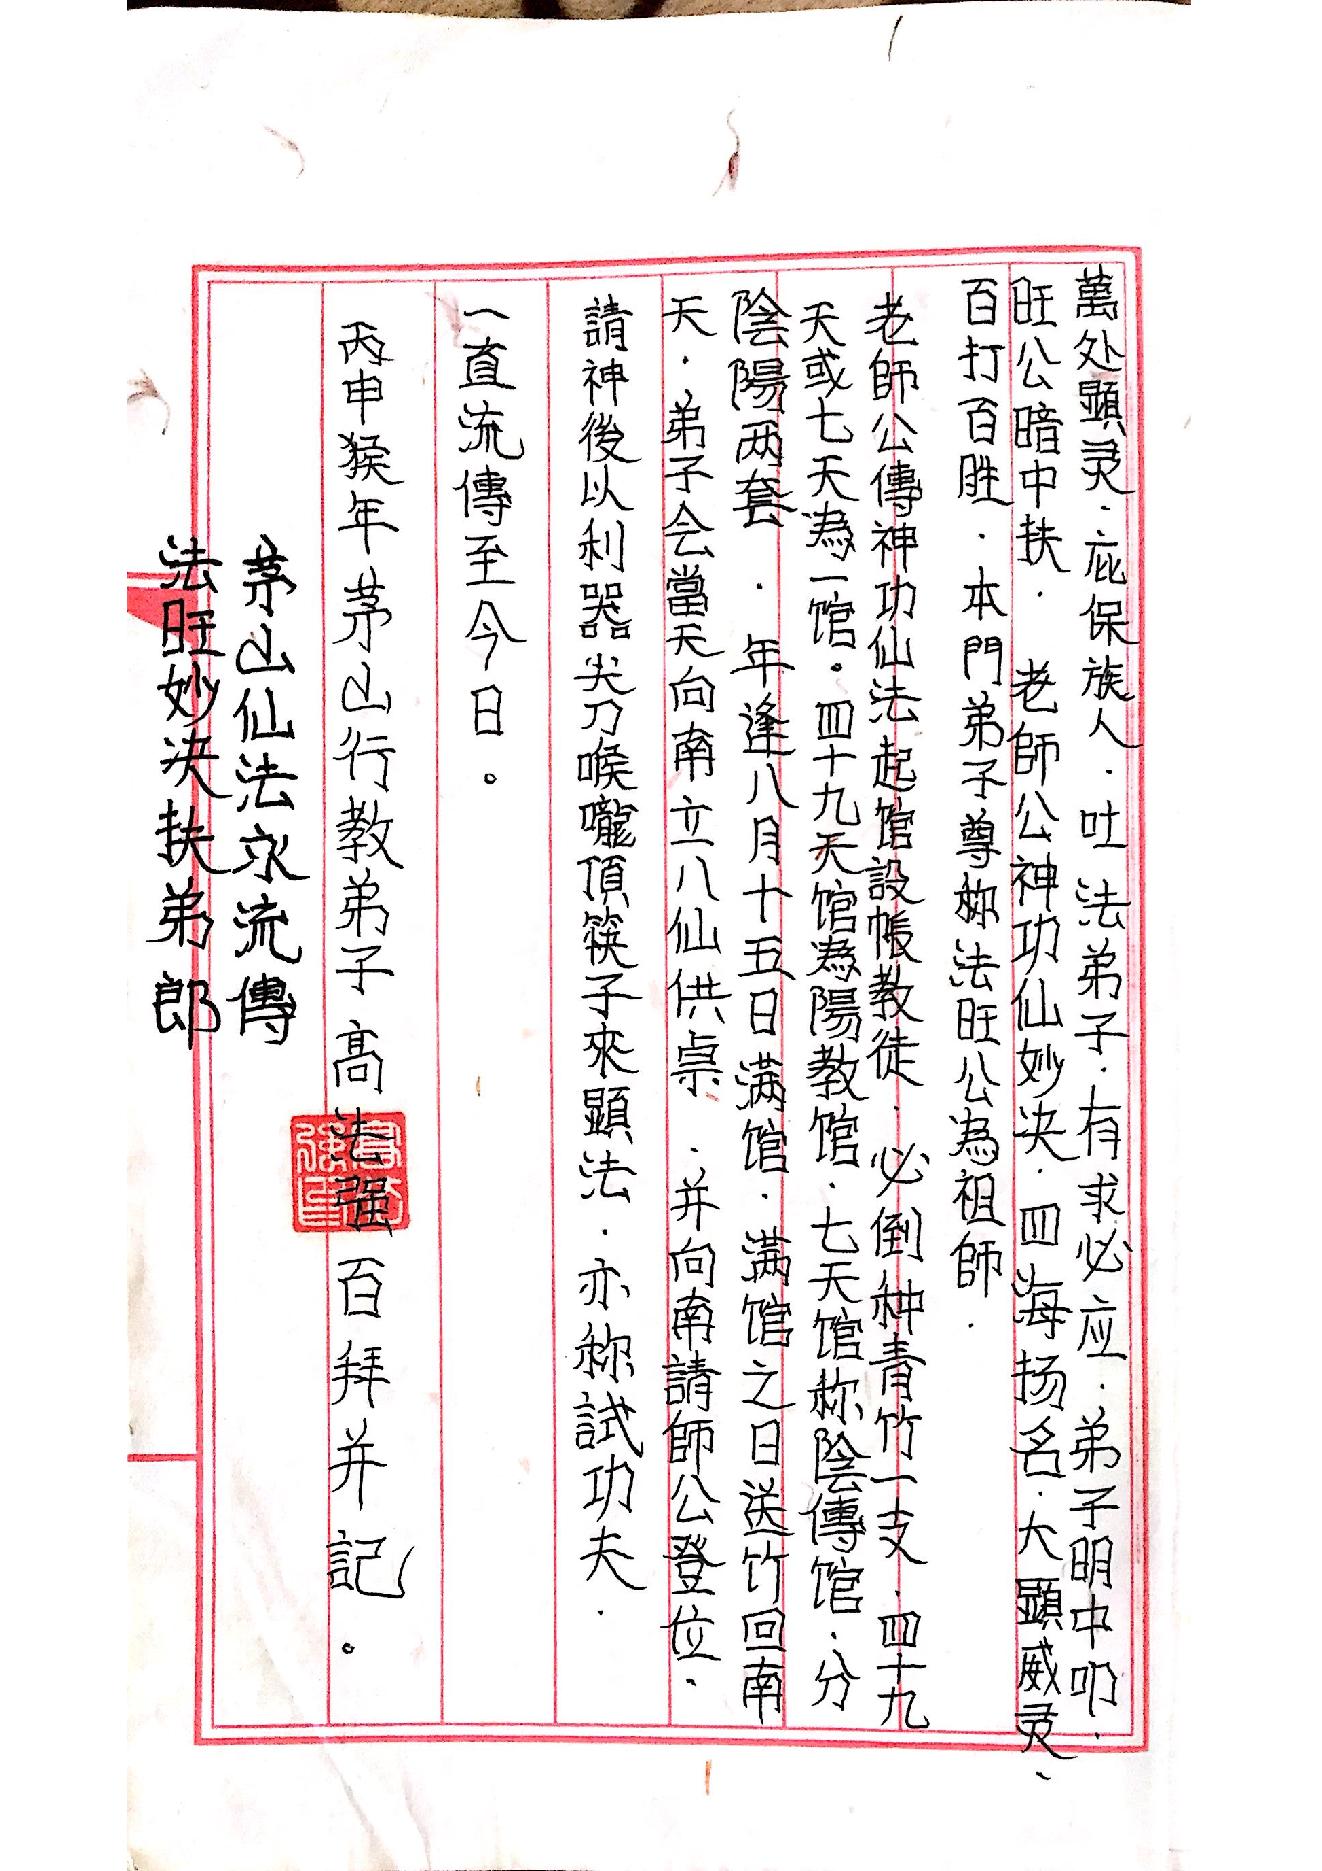 萬处顯灵．庇保族人．吐法弟子．有求必应．弟子明中叩．
旺公暗中扶．老師公神功仙妙决．四海扬名．大顯威灵、
百打百胜．本門弟子尊称法旺公為祖師．
老師公傳神功仙法起馆設帳教徒．必倒种青竹一支．四十九
天或七天為一馆。四十九天馆為陽教馆．七天馆称陰傳馆．分
陰陽两套．年逢八月十五日满馆．满馆之日送竹回南
天．弟子会當天向南立八仙供桌．并向南請師公登位．
請神後以利器尖刀喉嚨頂筷子來顯法．亦称試功夫．
一直流傳至今日。
丙申猴年茅山行教弟子高法强百拜并記。
茅山仙法永流傳
法旺妙决扶弟郎